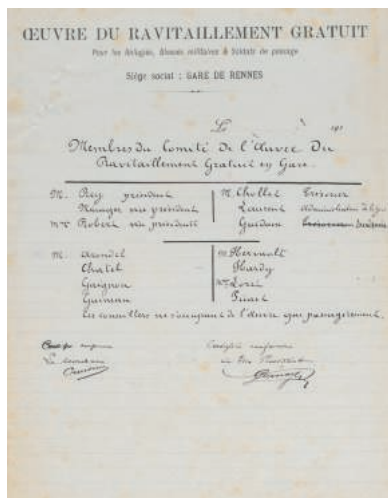 ŒUVRE DU RAVITAILLEMENT GRATUIT
Pour les Réfugiés, Blessés militaires & Soldats de passage
Siège social : GARE DE RENNES
Le 191
Membres du Comité de l'Œuvre du
Ravitaillement Gratuit en Gare.
M. Rey président
Ménager vice président
Mme Robert vice présidente
M. Chollet Trésorier
Laurent
Guidain
M. Arondel
Chatel
Guignon
M. Hervault
Hardy
Mme
Les conseillers ne s'occupent de l'œuvre que passagèrement.
Le secrétaire
Certifié conforme